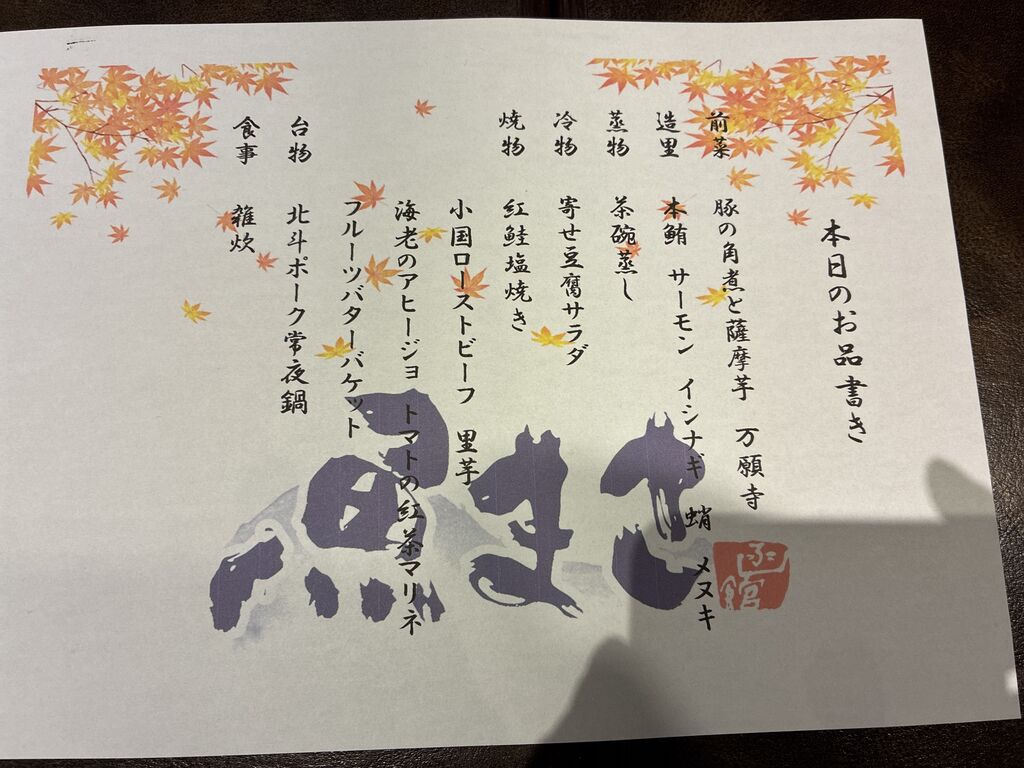 本日のお品書き
前菜 豚の角煮と薩摩芋 万願寺
造里 本鮪 サーモン イシナギ 蛸 メヌキ
蒸物 茶碗蒸し
冷物 寄せ豆腐サラダ
焼物 紅鮭塩焼き
小国ローストビーフ 里芋
海老のアヒージョ トマトの紅茶マリネ
フルーツバターバケット
台物 北斗ポーク常夜鍋
食事 雑炊
函館